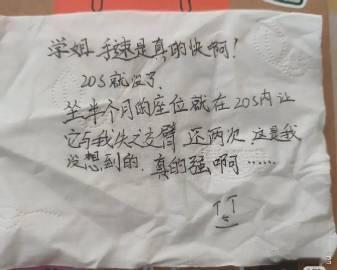 学姐 手速是真的快啊!
20S就没了
坐半个月的座位就在20S内让
它与我失之交臂 还两次.这是我
没想到的.真的强啊……